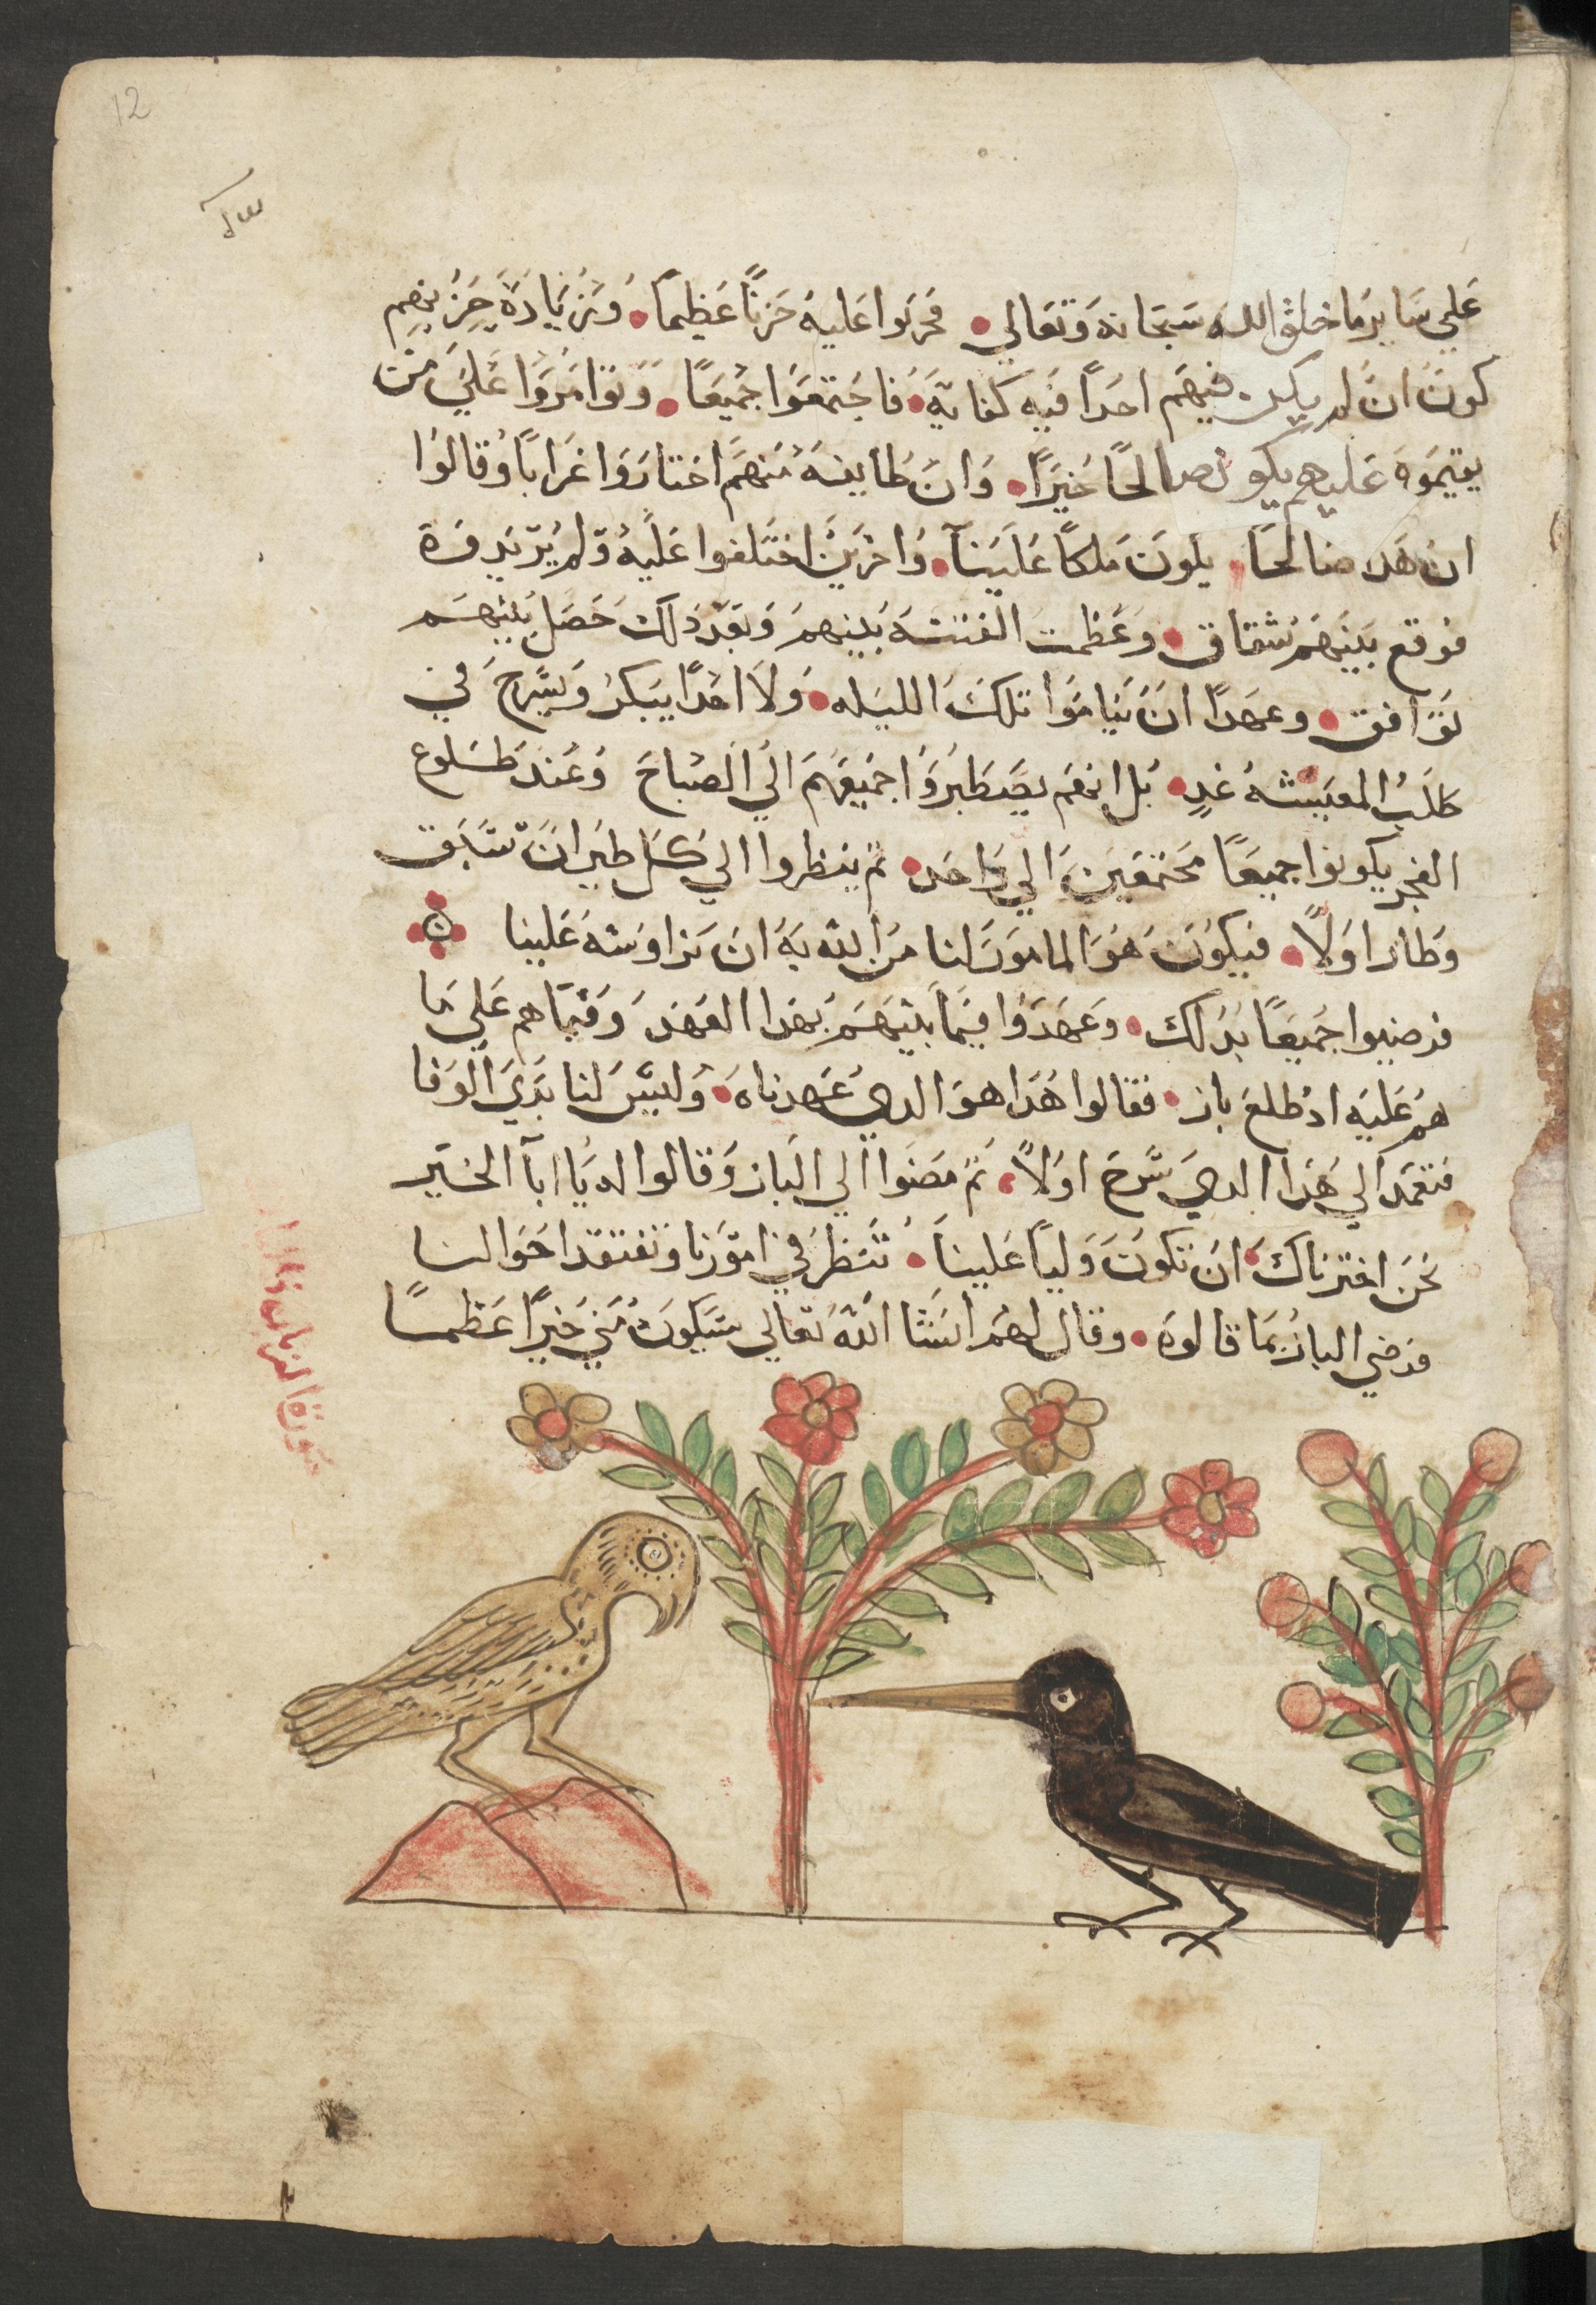 12
علي سَاير مَا خلق الله سَبحَانهَ وَتعَالي • فحَزنوا عَليهُ حَزنًا عَظيمًا • وَمَن زيَادَة حِزنهِم
كونَ انَ لم يكن فيهَم احَداً فيَه كفايَة • فاجَتمعَوا جميَعًا • وَتوَامَروَا عَليَ مَن
يقيمَوهَ عَليهم يكون صَالحًا خيَرًا • وَانَ طَايفهَ منَهمَ اختارَوَا غرَابًا وقالوُا
ان هَدا صَالحًا • يكونَ مَلكًا عَليَنَا • وَاخرَينَ اختَلفوا عَليَهُ وَلم يُرَيدوهَ
فوقع بَينَهَم شقاق • وعَظمت الفتنَهَ بَينهمَ وَبعَد دَلك حَصَل بَينهَم
تَوَافق • وعهَدًا انَ يَنامَوَا تلكَ الليَله • وَلاَ احَدًا يبَكرُ وَيَسَرحَ في
طَلبُ المعيَشهُ غدٍ • بَل انهَم يصَطبرُوَا جَميَعهَم الَي الصَباحَ وَعَند طَلوع
الفجر يكونوا جميعًا مَجتمَعَينَ الي وَاحَد • تم ينظروا الي كل طيرانَ سَبَق
وَطار اوَلاً • فيكوُنَ هَوَ المامَونَ لنا مَن الله بَهَ انَ نزاوسَهَ عَلينا
فرضيوا جَميعًا بدلك • وَعَهَدَوُا فيَمَا بَينهَم بَهذا العَهدَ وَفيمَا هم عَليَ مَا
هم عَليَه ادُ طَلع باز • فقالوا هَدَا هوَ الدي عَهدناهَ • وَليسَ لنا بَدَيَ الوَفا
فتعَمد الي هَدا الديَ سَرحَ اوَلاً • تَم مَضَوا الي البَاز وَقالوا له يَا ابَا الخيَر
نحَن اختَرناكَ انَ تكونَ وَليًا عَلينَا • تنَظرَ في امَورَنا وَتفتقد احَوَالنا
فرَضيَ البازَ بمَا قالوهَ • وقال لهَم انشَا اللَه تعَالي سَيكونَ مَني خيَرًا عَظمًا
صورة الغراب